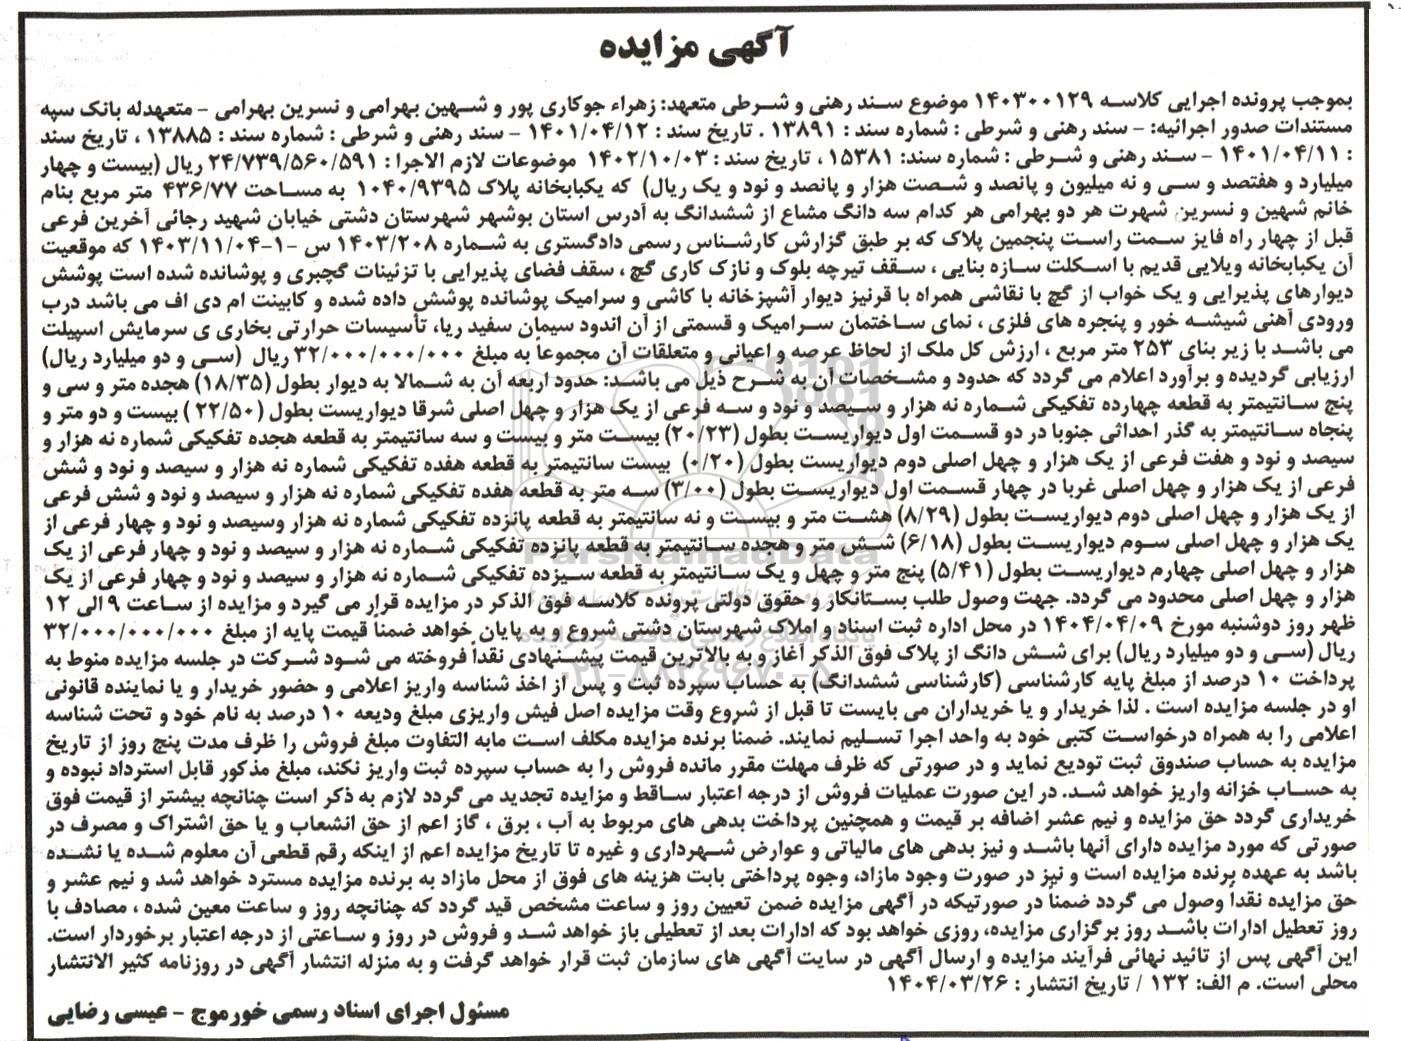 آگهی مزایده
بموجب پرونده اجرایی کلاسه ۱۴۰۳۰۰۱۲۹ موضوع سند رهنی و شرطی متعهد: زهراء جوکاری پور و شهین بهرامی و نسرین بهرامی – متعهدله بانک سپه
مستندات صدور اجرائیه: – سند رهنی و شرطی : شماره سند : ۱۳۸۹۱ . تاریخ سند : ۱۴۰۱/۰۴/۱۲ – سند رهنی و شرطی : شماره سند : ۱۳۸۸۵ ، تاریخ سند
: ۱۴۰۱/۰۴/۱۱ – سند رهنی و شرطی : شماره سند: ۱۵۳۸۱ ، تاریخ سند : ۱۴۰۲/۱۰/۰۳ موضوعات لازم الاجرا : ۲۴/۷۳۹/۵۶۰/۵۹۱ ریال (بیست و چهار
میلیارد و هفتصد و سی و نه میلیون و پانصد و شصت هزار و پانصد و نود و یک ریال) که یکبابخانه پلاک ۱۰۴۰/۹۳۹۵ به مساحت ۴۳۶/۷۷ متر مربع بنام
خانم شهین و نسرین شهرت هر دو بهرامی هر کدام سه دانگ مشاع از ششدانگ به آدرس استان بوشهر شهرستان دشتی خیابان شهید رجائی آخرین فرعی
قبل از چهار راه فایز سمت راست پنجمین پلاک که بر طبق گزارش کارشناس رسمی دادگستری به شماره ۱۴۰۳/۲۰۸ س –۱–۱۴۰۳/۱۱/۰۴ که موقعیت
آن یکبابخانه ویلایی قدیم با اسکلت سازه بنایی ، سقف تیرچه بلوک و نازک کاری گچ ، سقف فضای پذیرایی با تزئینات گچبری و پوشانده شده است پوشش
دیوارهای پذیرایی و یک خواب از گچ با نقاشی همراه با قرنیز دیوار آشپزخانه با کاشی و سرامیک پوشانده پوشش داده شده و کابینت ام دی اف می باشد درب
ورودی آهنی شیشه خور و پنجره های فلزی ، نمای ساختمان سرامیک و قسمتی از آن اندود سیمان سفید ریا، تأسیسات حرارتی بخاری ی سرمایش اسپیلت
می باشد با زیر بنای ۲۵۳ متر مربع ، ارزش کل ملک از لحاظ عرصه و اعیانی و متعلقات آن مجموعاً به مبلغ ۳۲/۰۰۰/۰۰۰/۰۰۰ ریال (سی و دو میلیارد ریال)
ارزیابی گردیده و برآورد اعلام می گردد که حدود و مشخصات آن به شرح ذیل می باشد: حدود اربعه آن به شمالا به دیوار بطول (۱۸/۳۵) هجده متر و سی و
پنج سانتیمتر به قطعه چهارده تفکیکی شماره نه هزار و سیصد و نود و سه فرعی از یک هزار و چهل اصلی شرقا دیواریست بطول (۲۲/۵۰ ) بیست و دو متر و
پنجاه سانتیمتر به گذر احداثی جنوبا در دو قسمت اول دیواریست بطول (۲۰/۲۳) بیست متر و بیست و سه سانتیمتر به قطعه هجده تفکیکی شماره نه هزار و
سیصد و نود و هفت فرعی از یک هزار و چهل اصلی دوم دیواریست بطول (۰/۲۰) بیست سانتیمتر به قطعه هفده تفکیکی شماره نه هزار و سیصد و نود و شش
فرعی از یک هزار و چهل اصلی غربا در چهار قسمت اول دیواریست بطول (۳/۰۰) سه متر به قطعه هفده تفکیکی شماره نه هزار و سیصد و نود و شش فرعی
از یک هزار و چهل اصلی دوم دیواریست بطول (۸/۲۹) هشت متر و بیست و نه سانتیمتر به قطعه پانزده تفکیکی شماره نه هزار وسیصد و نود و چهار فرعی از
یک هزار و چهل اصلی سوم دیواریست بطول (۶/۱۸) شش متر و هجده سانتیمتر به قطعه پانزده تفکیکی شماره نه هزار و سیصد و نود و چهار فرعی از یک
هزار و چهل اصلی چهارم دیواریست بطول (۵/۴۱) پنج متر و چهل و یک سانتیمتر به قطعه سیزده تفکیکی شماره نه هزار و سیصد و نود و چهار فرعی از یک
هزار و چهل اصلی محدود می گردد. جهت وصول طلب بستانکار و حقوق دولتی پرونده کلاسه فوق الذکر در مزایده قرار می گیرد و مزایده از ساعت ۹ الی ۱۲
ظهر روز دوشنبه مورخ ۱۴۰۴/۰۴/۰۹ در محل اداره ثبت اسناد و املاک شهرستان دشتی شروع و به پایان خواهد ضمنا قیمت پایه از مبلغ ۳۲/۰۰۰/۰۰۰/۰۰۰
ریال (سی و دو میلیارد ریال) برای شش دانگ از پلاک فوق الذکر آغاز و به بالاترین قیمت پیشنهادی نقداً فروخته می شود شرکت در جلسه مزایده منوط به
پرداخت ۱۰ درصد از مبلغ پایه کارشناسی (کارشناسی ششدانگ) به حساب سپرده ثبت و پس از اخذ شناسه واریز اعلامی و حضور خریدار و یا نماینده قانونی
او در جلسه مزایده است . لذا خریدار و یا خریداران می بایست تا قبل از شروع وقت مزایده اصل فیش واریزی مبلغ ودیعه ۱۰ درصد به نام خود و تحت شناسه
اعلامی را به همراه درخواست کتبی خود به واحد اجرا تسلیم نمایند. ضمنا برنده مزایده مکلف است مابه التفاوت مبلغ فروش را ظرف مدت پنج روز از تاریخ
مزایده به حساب صندوق ثبت تودیع نماید و در صورتی که ظرف مهلت مقرر مانده فروش را به حساب سپرده ثبت واریز نکند، مبلغ مذکور قابل استرداد نبوده و
به حساب خزانه واریز خواهد شد. در این صورت عملیات فروش از درجه اعتبار ساقط و مزایده تجدید می گردد لازم به ذکر است چنانچه بیشتر از قیمت فوق
خریداری گردد حق مزایده و نیم عشر اضافه بر قیمت و همچنین پرداخت بدهی های مربوط به آب ، برق ، گاز اعم از حق انشعاب و یا حق اشتراک و مصرف در
صورتی که مورد مزایده دارای آنها باشد و نیز بدهی های مالیاتی و عوارض شهرداری و غیره تا تاریخ مزایده اعم از اینکه رقم قطعی آن معلوم شده یا نشده
باشد به عهده برنده مزایده است و نیز در صورت وجود مازاد، وجوه پرداختی بابت هزینه های فوق از محل مازاد به برنده مزایده مسترد خواهد شد و نیم عشر و
حق مزایده نقداً وصول می گردد ضمناً در صورتیکه در آگهی مزایده ضمن تعیین روز و ساعت مشخص قید گردد که چنانچه روز و ساعت معین شده ، مصادف با
روز تعطیل ادارات باشد روز برگزاری مزایده، روزی خواهد بود که ادارات بعد از تعطیلی باز خواهد شد و فروش در روز و ساعتی از درجه اعتبار برخوردار است.
این آگهی پس از تائید نهائی فرآیند مزایده و ارسال آگهی در سایت آگهی های سازمان ثبت قرار خواهد گرفت و به منزله انتشار آگهی در روزنامه کثیر الانتشار
محلی است. م الف: ۱۳۲ / تاریخ انتشار : ۱۴۰۴/۰۳/۲۶
مسئول اجرای اسناد رسمی خورموج – عیسی رضایی
ParsNamadData
۰۲۱–۸۸۳۴۹۶۷۰–۵